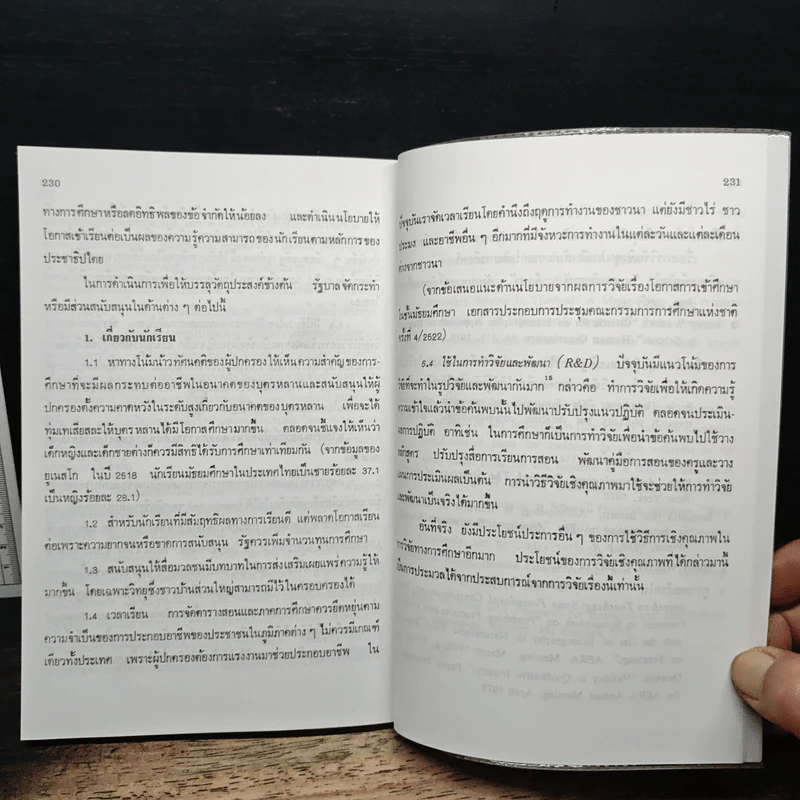 230
ทางการศึกษาหรือลดอิทธิพลของข้อจำกัดให้น้อยลง และดำเนินนโยบายให้
โอกาสเข้าเรียนต่อเป็นผลของความรู้ความสามารถของนักเรียนตามหลักการของ
ประชาธิปไตย
ในการดำเนินการเพื่อให้บรรลุวัตถุประสงค์ข้างต้น รัฐบาลจัดกระทำ
หรือมีส่วนสนับสนุนในด้านต่าง ๆ ต่อไปนี้
1. เกี่ยวกับนักเรียน
1.1 หาทางโน้มน้าวทัศนคติของผู้ปกครองให้เห็นความสำคัญของการ-
ศึกษาที่จะมีผลกระทบต่ออาชีพในอนาคตของบุตรหลานและสนับสนุนให้ผู้
ปกครองตั้งความคาดหวังในระดับสูงเกี่ยวกับอนาคตของบุตรหลาน เพื่อจะได้
ทุ่มเทเสียสละให้บุตรหลานได้มีโอกาสศึกษามากขึ้น ตลอดจนชี้แจงให้เห็นว่า
เด็กหญิงและเด็กชายต่างก็ควรมีสิทธิได้รับการศึกษาเท่าเทียมกัน (จากข้อมูลของ
ยูเนสโก ในปี 2518 นักเรียนมัธยมศึกษาในประเทศไทยเป็นชายร้อยละ 37.1
เป็นหญิงร้อยละ 28.1)
1.2 สำหรับนักเรียนที่มีสัมฤทธิผลทางการเรียนดี แต่พลาดโอกาสเรียน
ต่อเพราะความยากจนหรือขาดการสนับสนุน รัฐควรเพิ่มจำนวนทุนการศึกษา
1.3 สนับสนุนให้สื่อมวลชนมีบทบาทในการส่งเสริมเผยแพร่ความรู้ให้
มากขึ้น โดยเฉพาะวิทยุซึ่งชาวบ้านส่วนใหญ่สามารถมีไว้ในครอบครองได้
1.4 เวลาเรียน การจัดตารางสอนและภาคการศึกษาควรยืดหยุ่นตาม
ความจำเป็นของการประกอบอาชีพของประชาชนในภูมิภาคต่าง ๆ ไม่ควรมีเกณฑ์
เดียวทั้งประเทศ เพราะผู้ปกครองต้องการแรงงานมาช่วยประกอบอาชีพ ใน
231
ปัจจุบันเราจัดเวลาเรียนโดยคำนึงถึงฤดูการทำงานของชาวนา แต่ยังมีชาวไร่ ชาว
ประมง และอาชีพอื่น ๆ อีกมากที่มีจังหวะการทำงานในแต่ละวันและแต่ละเดือน
ต่างจากชาวนา
(จากข้อเสนอแนะด้านนโยบายจากผลการวิจัยเรื่องโอกาสการเข้าศึกษา
ในชั้นมัธยมศึกษา เอกสารประกอบการประชุมคณะกรรมการการศึกษาแห่งชาติ
ครั้งที่ 4/2522)
5.4 ใช้ในการทำวิจัยและพัฒนา (R&D) ปัจจุบันมีแนวโน้มของการ
วิจัยที่จะทำในรูปวิจัยและพัฒนากันมาก กล่าวคือ ทำการวิจัยเพื่อให้เกิดความรู้
ความเข้าใจแล้วนำข้อค้นพบนั้นไปพัฒนาปรับปรุงแนวปฏิบัติ ตลอดจนประเมิน-
การปฏิบัติ อาทิเช่น ในการศึกษาก็เป็นการทำวิจัยเพื่อนำข้อค้นพบไปใช้วาง
หลักสูตร ปรับปรุงสื่อการเรียนการสอน พัฒนาคู่มือการสอนของครูและวาง
แผนการประเมินผลเป็นต้น การนำวิธีวิจัยเชิงคุณภาพมาใช้จะช่วยให้การทำวิจัย
และพัฒนาเป็นจริงได้มากขึ้น
อันที่จริง ยังมีประโยชน์ประการอื่น ๆ ของการใช้วิธีการเชิงคุณภาพใน
การวิจัยทางการศึกษาอีกมาก ประโยชน์ของการวิจัยเชิงคุณภาพที่ได้กล่าวมานี้
เป็นการประมวลได้จากประสบการณ์จากการวิจัยเรื่องนี้เท่านั้น